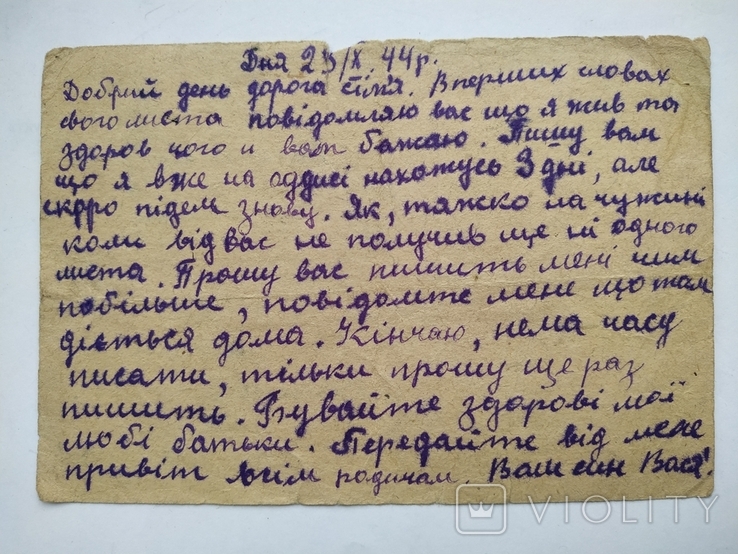 Дня 23/X. 44 р.
Добрий день дорога сім'я. В перших словах
свого листа повідомляю вас що я жив та
здоров чого и вам бажаю. Пишу вам
що я вже на оддисі нахожусь 3 дні, але
скоро підем знову. Як, тяжко на чужині
коли від вас не получив ще ні одного
листа. Прошу вас пишить мені чим
побільше, повідомте мене що там
діється дома. Кінчаю, нема часу
писати, тільки прошу ще раз
пишить. Бувайте здорові мої
любі батьки. Передайте від мене
привіт всім родичам. Ваш син Вася!
VIOLITY